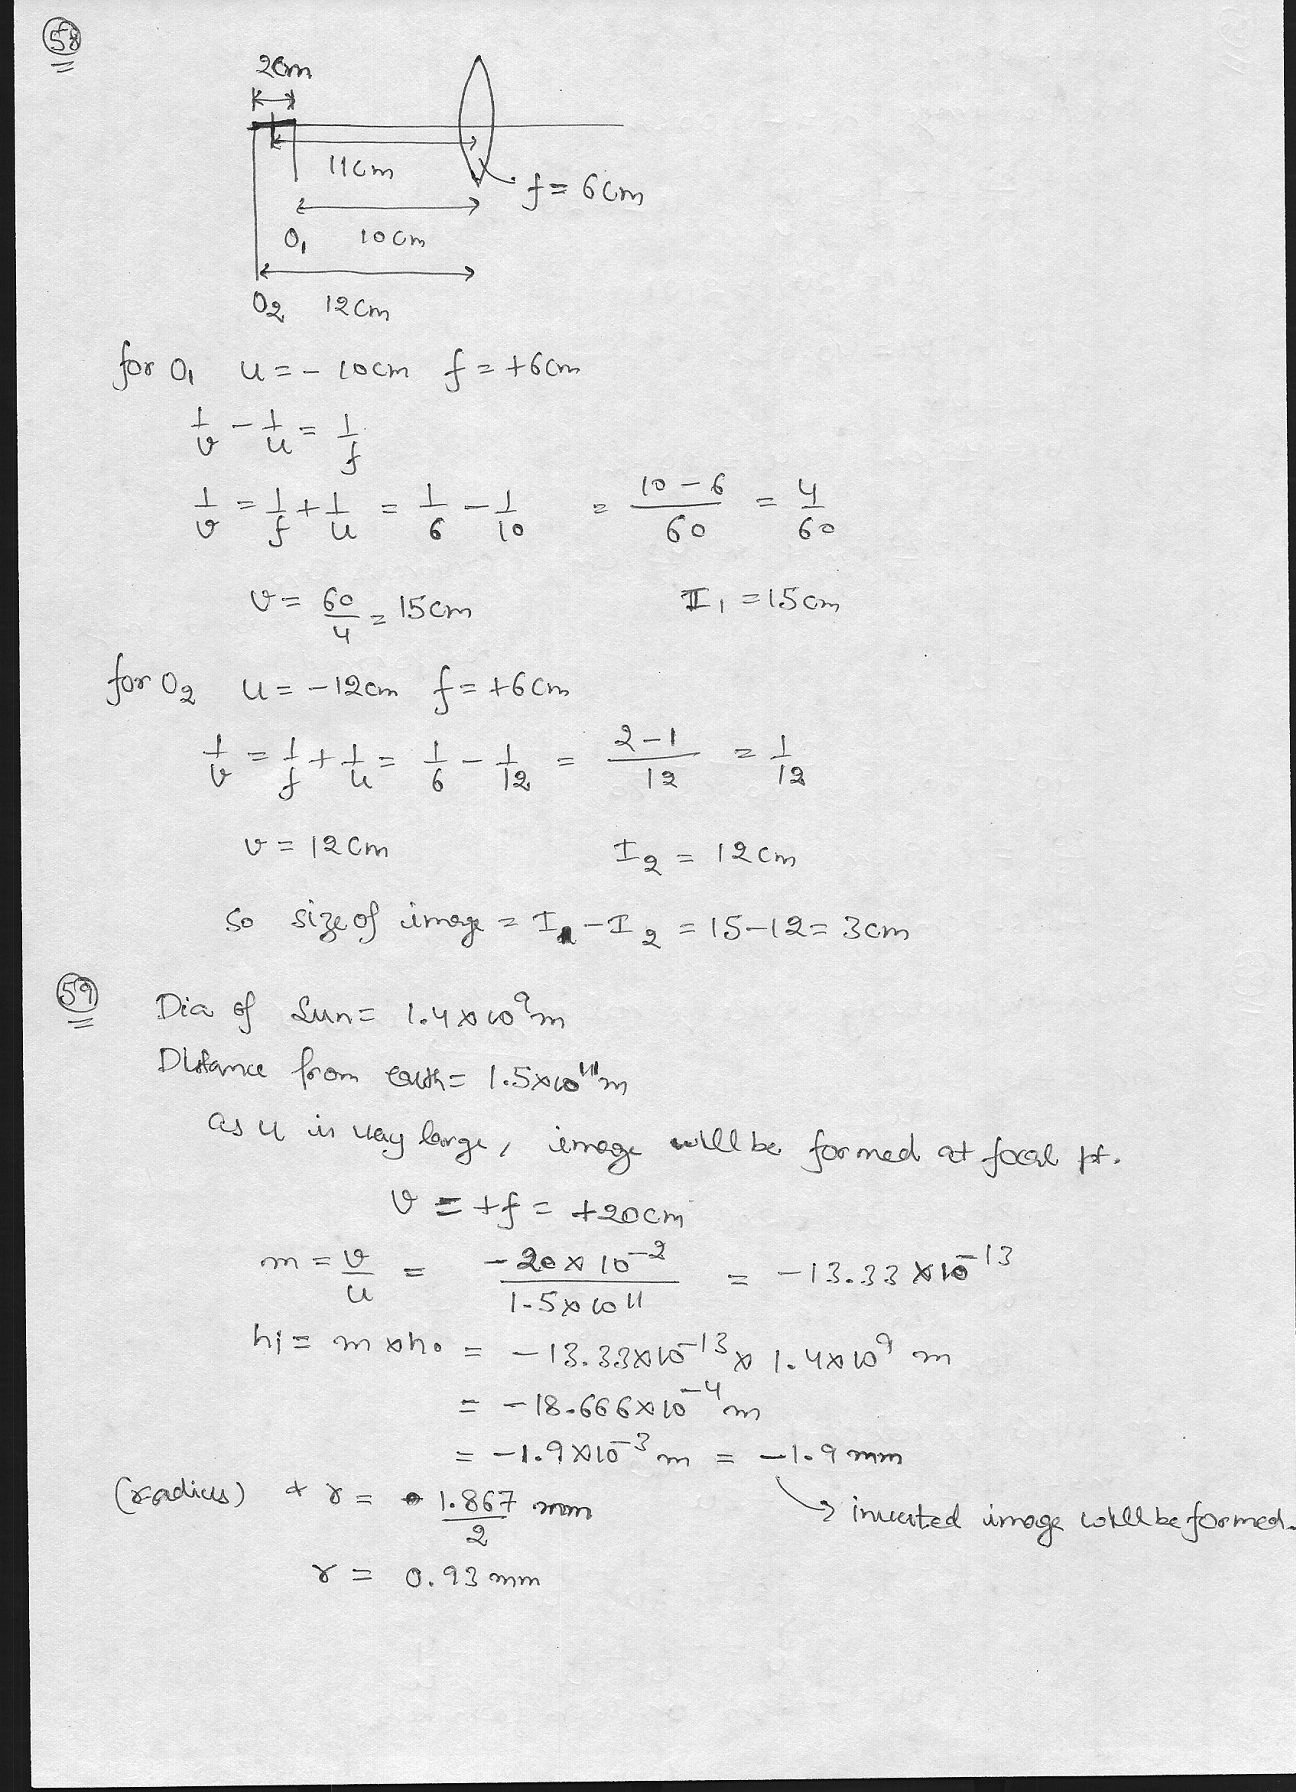 58
2cm
11cm
f = 6cm
O₁ 10cm
O₂ 12cm
for O₁ u = - 10cm f = +6cm
1/v - 1/u = 1/f
1/v = 1/f + 1/u = 1/6 - 1/10 = (10 - 6)/60 = 4/60
v = 60/4 = 15cm I₁ = 15cm
for O₂ u = -12cm f = +6cm
1/v = 1/f + 1/u = 1/6 - 1/12 = (2 - 1)/12 = 1/12
v = 12cm I₂ = 12cm
so size of image = I₁ - I₂ = 15 - 12 = 3cm
59 Dia of Sun = 1.4 × 10⁹ m
Distance from earth = 1.5 × 10¹¹ m
as u is very large, image will be formed at focal pt.
v = +f = +20cm
m = v/u = (-20 × 10⁻²)/(1.5 × 10¹¹) = -13.33 × 10⁻¹³
hi = m × ho = -13.33 × 10⁻¹³ × 1.4 × 10⁹ m
= -18.666 × 10⁻⁴ m
= -1.9 × 10⁻³ m = -1.9 mm
(radius) r = 1.867/2 mm → inverted image will be formed.
r = 0.93 mm